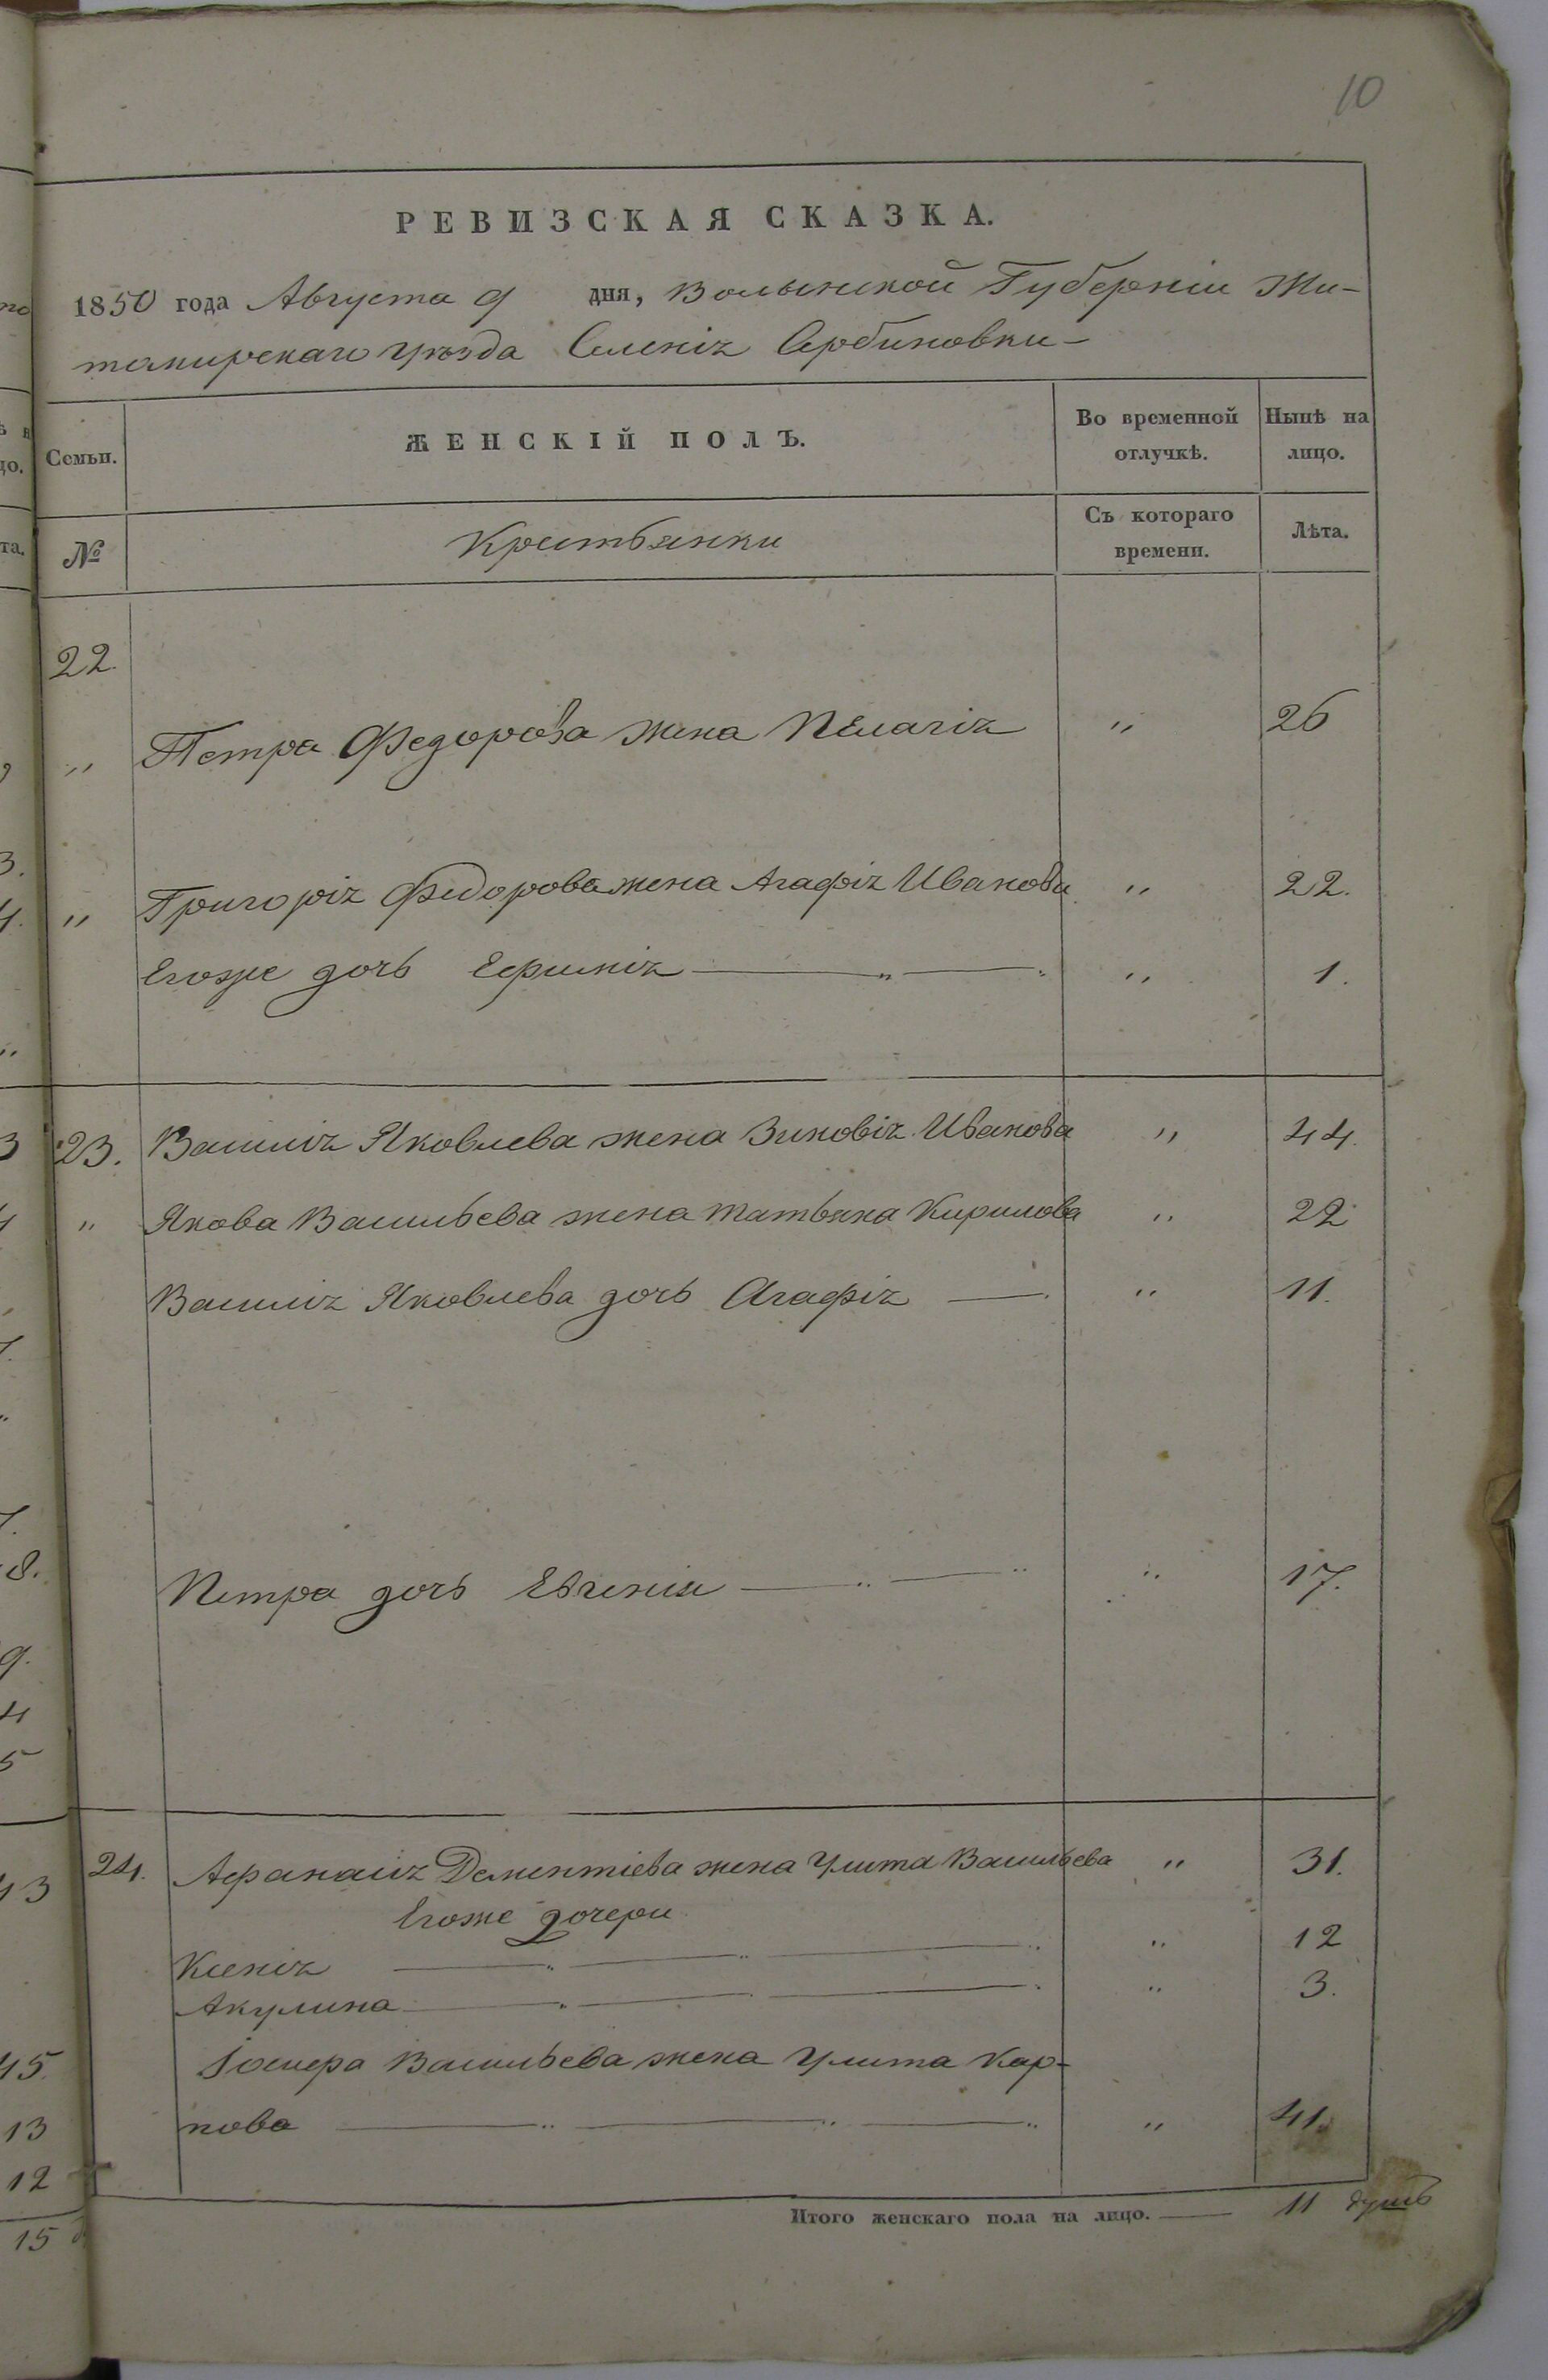 10
РЕВИЗСКАЯ СКАЗКА.
1850 года Августа 9 дня, Волынской Губерніи Жи-
томирскаго уѣзда Селенія Сербиновки
Семьи. ЖЕНСКІЙ ПОЛЪ. Во временной отлучкѣ. Нынѣ на лицо.
№ Крестьянки Съ котораго времени. Лѣта.
22.
„ Петра Федорова жена Пелагія „ 26
„ Григорія Федорова жена Агафія Иванова „ 22.
Егоже дочь Ефимія „ 1.
23. Василія Яковлева жена Зиновія Иванова „ 44.
„ Якова Васильева жена Татьяна Кирилова „ 22
Василія Яковлева дочь Агафія „ 11.
Петра дочь Евгенія „ 17.
24. Афанасія Дементіева жена Улита Васильева „ 31.
Егоже дочери
Ксенія „ 12
Акулина „ 3.
Іосифа Васильева жена Улита Кар-
пова „ 41.
Итого женскаго пола на лицо. 11 душъ